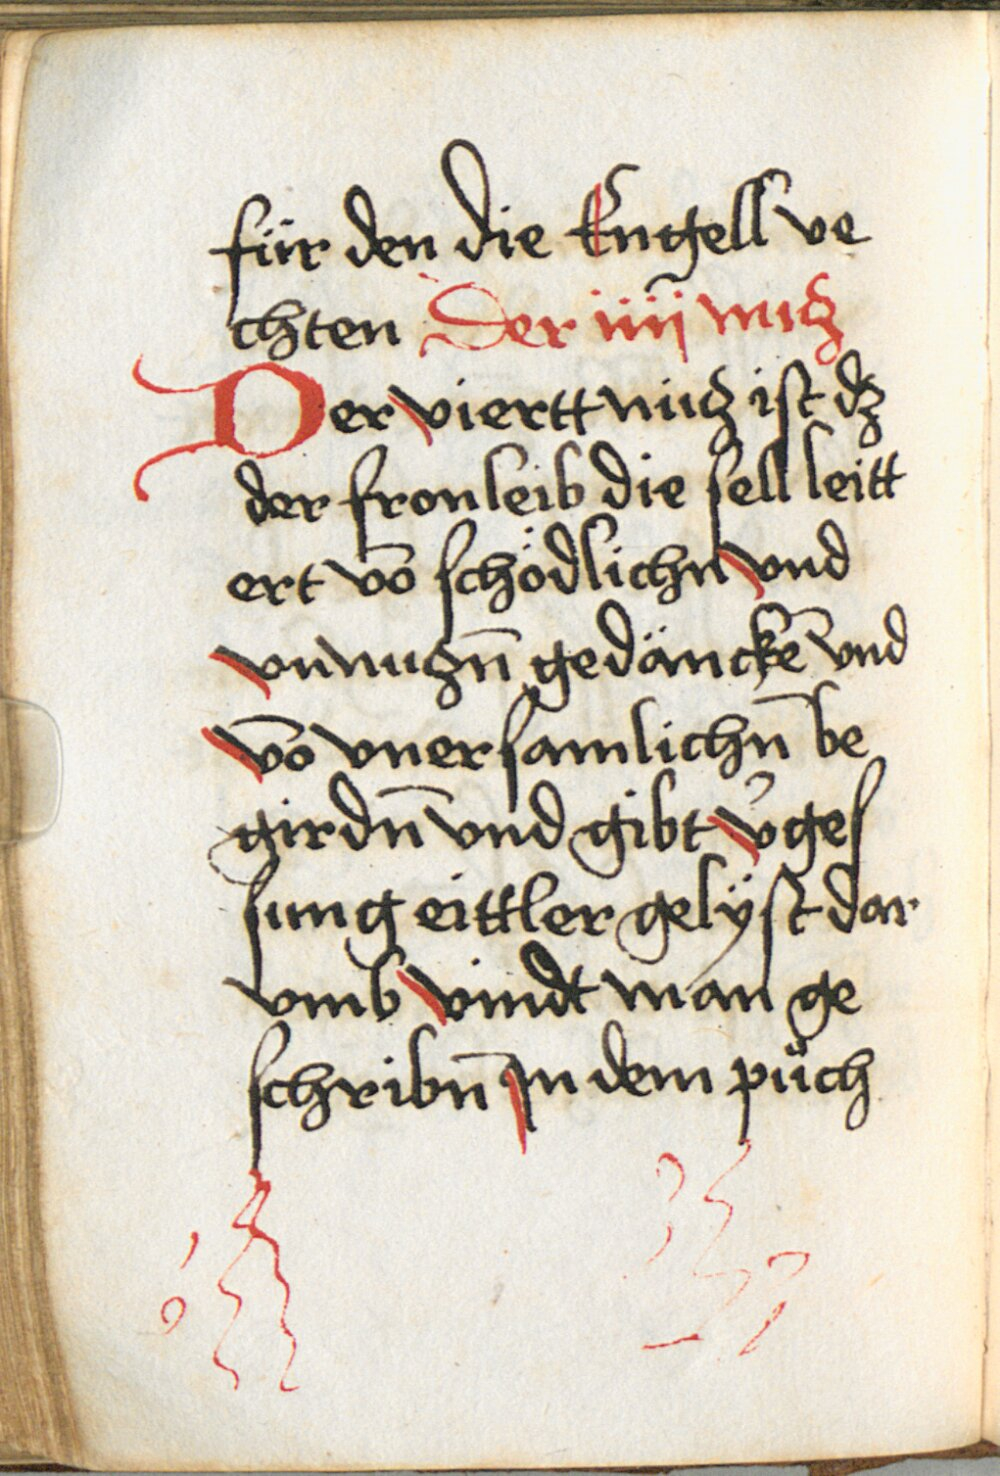 für den die Engell ve
chten Der iiij nucz
Der viertt nücz ist dz
der fronleib die sell leitt
ert vō schödlichn vnd
vnnuczn̄ gedänckē vnd
vō vnersamlichn̄ be
girdn̄ vnd gibt v̉ges
sung eittler gelÿst dar
vmb vindt man ge
schribn̄ In dem půch